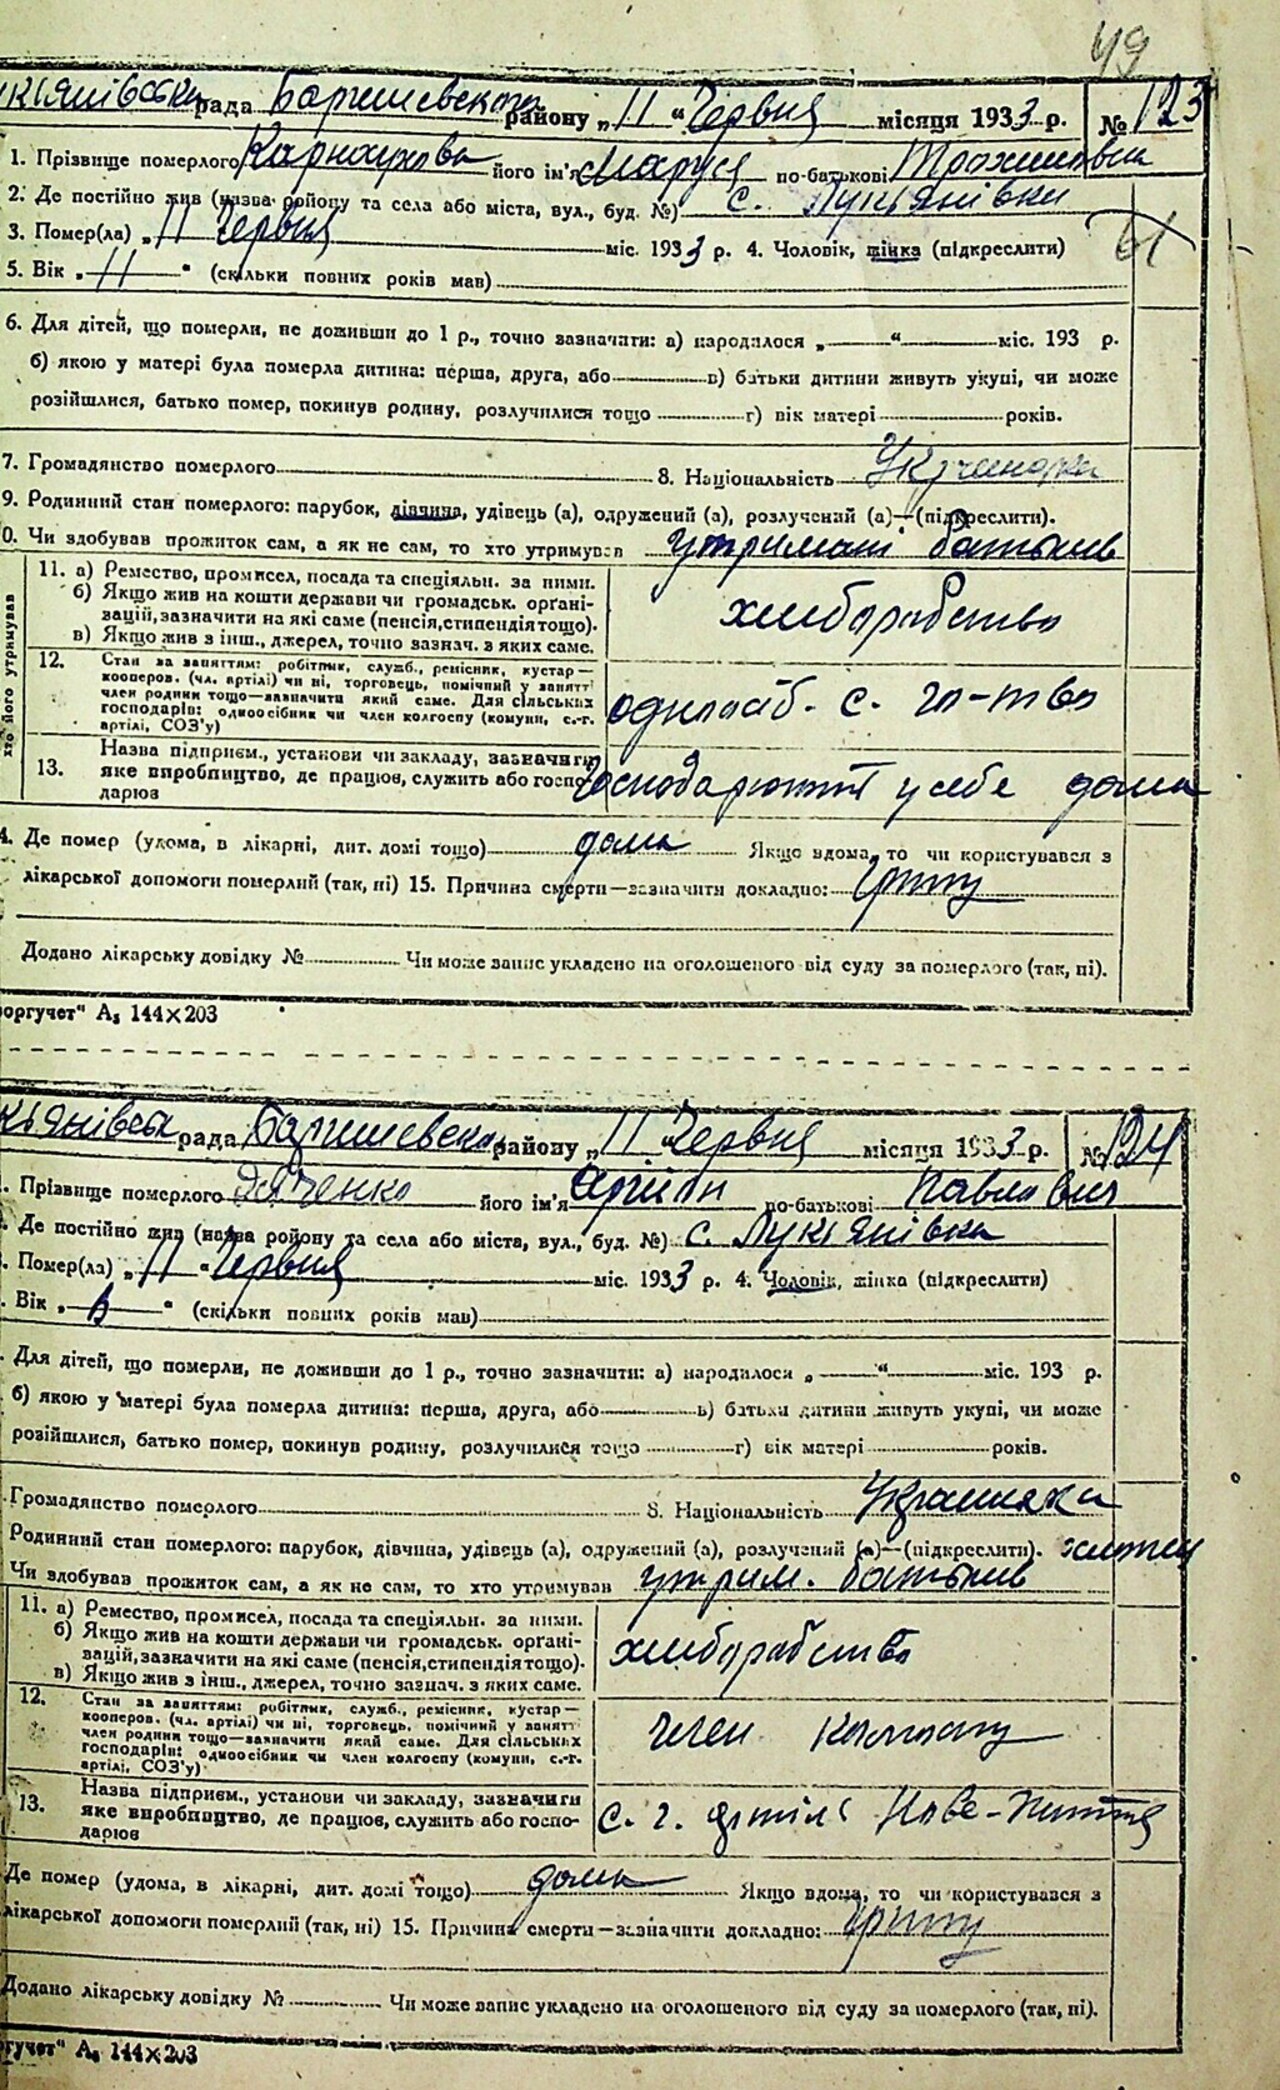 49
кіянівська рада Баришевского району „11“ Червня місяця 1933 р. № 123
1. Прізвище померлого Карнаухова його ім'я Маруся по-батькові Трохимовна
2. Де постійно жив (назва району та села або міста, вул., буд. №) с. Лукьянівки
3. Помер(ла) „11 Червня міс. 1933 р. 4. Чоловік, жінка (підкреслити)
5. Вік „11“ (скільки повних років мав)
6. Для дітей, що померли, не доживши до 1 р., точно зазначити: а) народилося „ “ міс. 193 р.
б) якою у матері була померла дитина: перша, друга, або в) батьки дитини живуть укупі, чи може
розійшлися, батько помер, покинув родину, розлучилися тощо г) вік матері років.
7. Громадянство померлого 8. Національність Українка
9. Родинний стан померлого: парубок, дівчина, удівець (а), одружений (а), розлучений (а)—(підкреслити).
0. Чи здобував прожиток сам, а як не сам, то хто утримував утримані батьків
хто його утримував
11. а) Ремество, промисел, посада та спеціяльн. за ними.
б) Якщо жив на кошти держави чи громадськ. орґані-
зацій, зазначити на які саме (пенсія, стипендія тощо).
в) Якщо жив з інш., джерел, точно зазнач. з яких саме.
хлиборобство
12. Стан за заняттям: робітник, служб., ремісник, кустар—
кооперов. (чл. артілі) чи ні, торговець, помічний у занятті
член родини тощо—зазначити який саме. Для сільських
господарів: одноосібник чи член колгоспу (комуни, с.-г.
артілі, СОЗ'у)
одноосіб. с. го-тво
13. Назва підприєм., установи чи закладу, зазначити
яке виробництво, де працює, служить або госпо-
дарює
господарюють у себе дома
4. Де помер (удома, в лікарні, дит. домі тощо) дома Якщо вдома, то чи користувався з
лікарської допомоги померлий (так, ні) 15. Причина смерти—зазначити докладно: Грипу
Додано лікарську довідку № Чи може запис укладено на оголошеного від суду за померлого (так, ні).
оргучет" А5 144×203
кьянівськ рада Баришевского району „11“ Червня місяця 1933 р. № 124
. Прізвище померлого Дяченко його ім'я по-батькові Павлович
. Де постійно жив (назва району та села або міста, вул., буд. №) с. Лукьянівка
. Помер(ла) „11“ Червня міс. 1933 р. 4. Чоловік, жінка (підкреслити)
. Вік „ “ (скільки повних років мав)
. Для дітей, що померли, не доживши до 1 р., точно зазначити: а) народилося „ “ міс. 193 р.
б) якою у матері була померла дитина: перша, друга, або в) батьки дитини живуть укупі, чи може
розійшлися, батько помер, покинув родину, розлучилися тощо г) вік матері років.
. Громадянство померлого 8. Національність
Родинний стан померлого: парубок, дівчина, удівець (а), одружений (а), розлучений (а)—(підкреслити).
Чи здобував прожиток сам, а як не сам, то хто утримував утрим. батьків
11. а) Ремество, промисел, посада та спеціяльн. за ними.
б) Якщо жив на кошти держави чи громадськ. орґані-
зацій, зазначити на які саме (пенсія, стипендія тощо).
в) Якщо жив з інш., джерел, точно зазнач. з яких саме.
хлиборобство
12. Стан за заняттям: робітник, служб., ремісник, кустар—
кооперов. (чл. артілі) чи ні, торговець, помічний у занятт
член родини тощо—зазначити який саме. Для сільських
господарів: одноосібник чи член колгоспу (комуни, с.-г.
артілі, СОЗ'у)
член колгоспу
13. Назва підприєм., установи чи закладу, зазначити
яке виробництво, де працює, служить або госпо-
дарює
с. г. артіль Нове-життя
Де помер (удома, в лікарні, дит. домі тощо) дома Якщо вдома, то чи користувався з
лікарської допомоги померлий (так, ні) 15. Причина смерти—зазначити докладно: Грипу
Додано лікарську довідку № Чи може запис укладено на оголошеного від суду за померлого (так, ні).
ргучет" А5 144×203